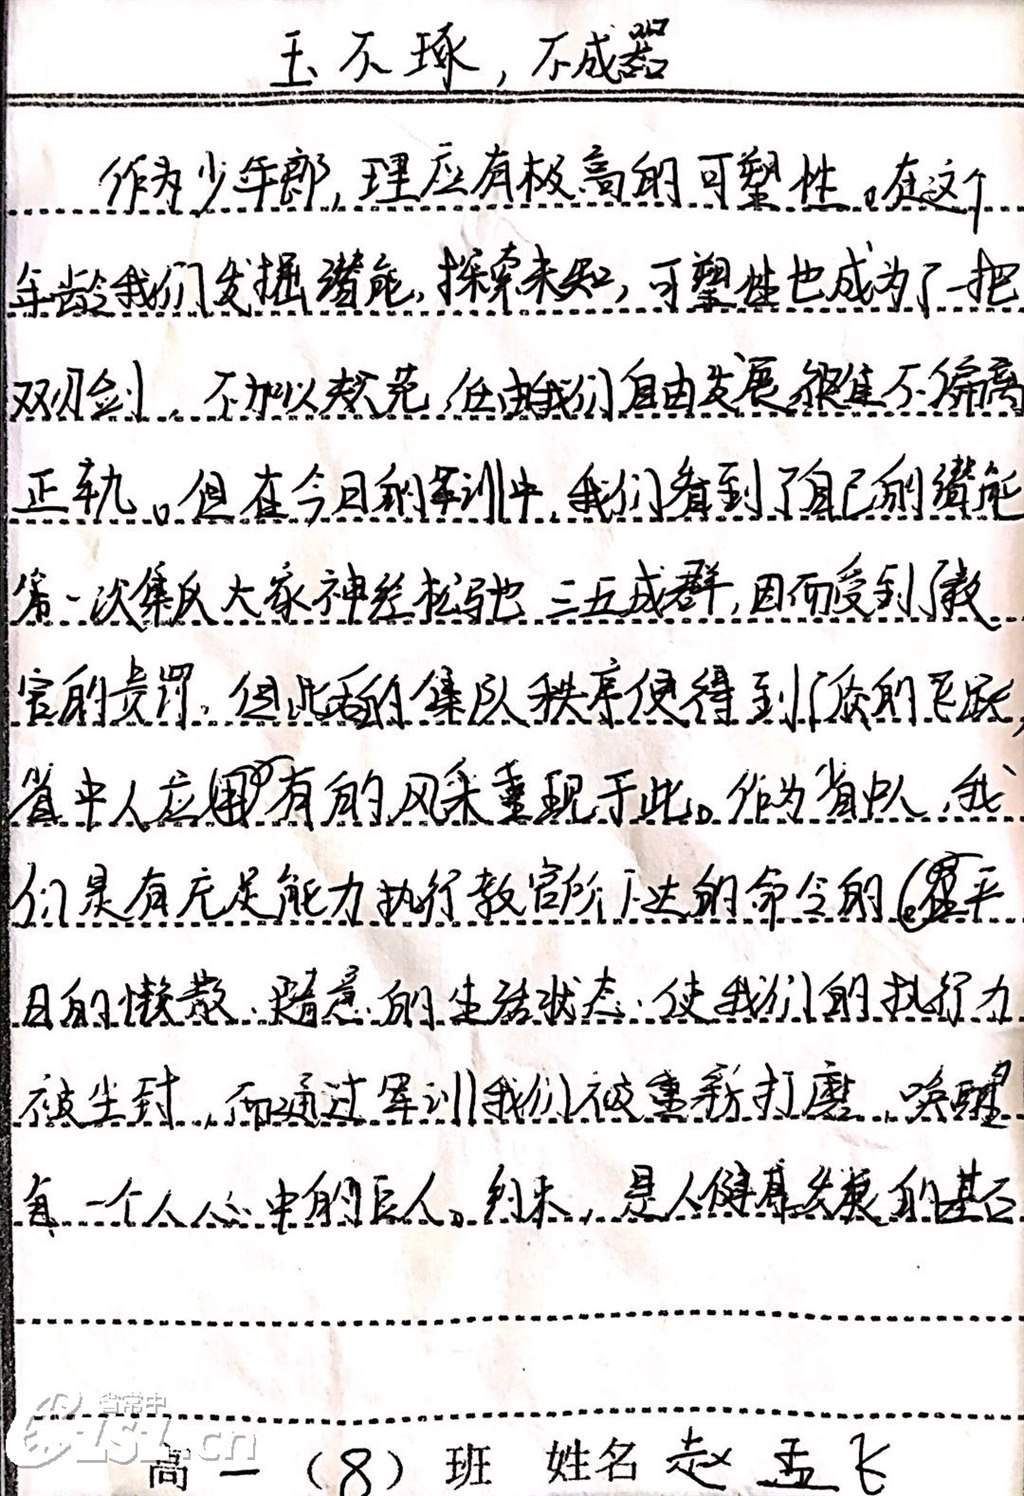 玉不琢，不成器
作为少年郎，理应有极高的可塑性。在这个
年龄我们发掘潜能，探索未知，可塑性也成为了一把
双刃剑，不加以规范，任由我们自由发展很难不偏离
正轨。但在今日的军训中，我们看到了自己的潜能
第一次集队大家神经松弛 三五成群，因而受到了教
官的责罚，但此后的集队秩序便得到了质的飞跃，
省中人应有的风采重现于此。作为省中人，我
们是有充足能力执行教官所下达的命令的，平
日的懒散、随意的生活状态，使我们的执行力
被尘封，而通过军训我们被重新打磨，唤醒
每一个人心中的巨人。约束，是人健康发展的基石
省常中
CSZ.cn
高一（8）班 姓名 赵孟飞